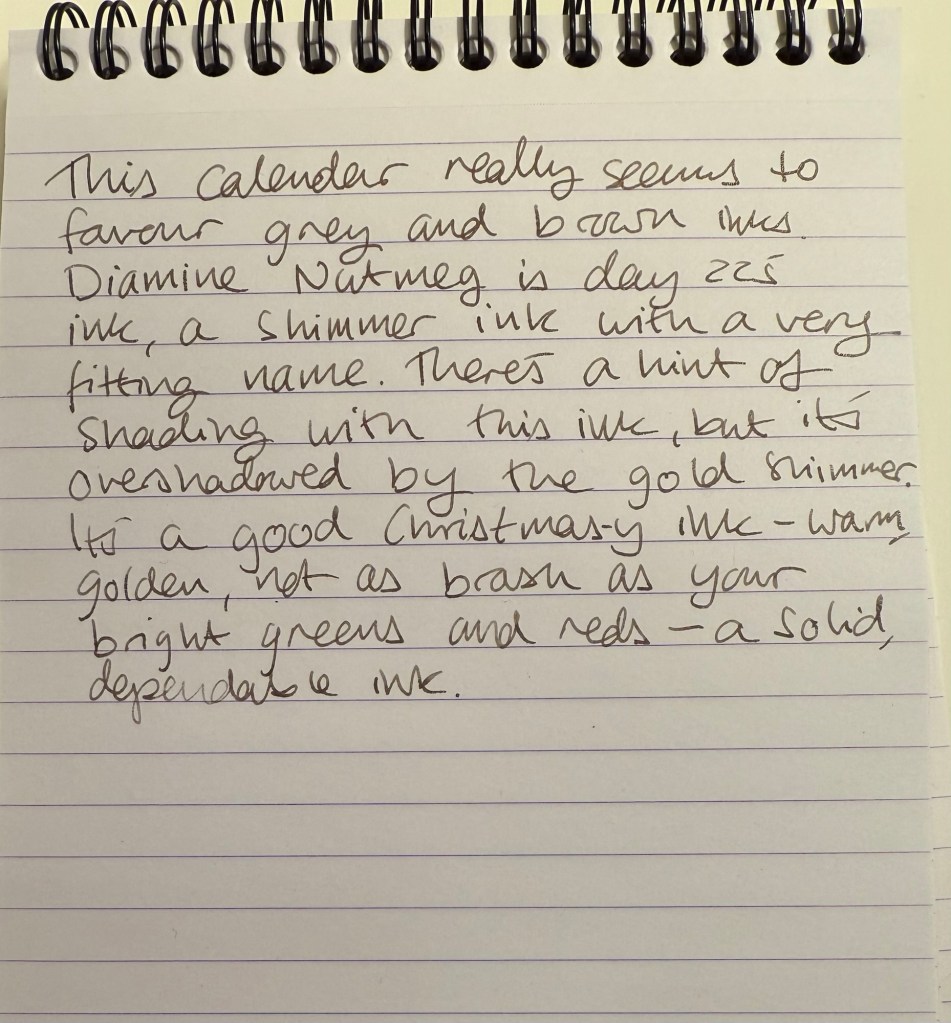 This calendar really seems to
favour grey and brown inks.
Diamine Nutmeg is day 225
ink, a shimmer ink with a very
fitting name. There's a hint of
shading with this ink, but it's
overshadowed by the gold shimmer.
It's a good Christmas-y ink - warm,
golden, not as brash as your
bright greens and reds - a solid,
dependable ink.